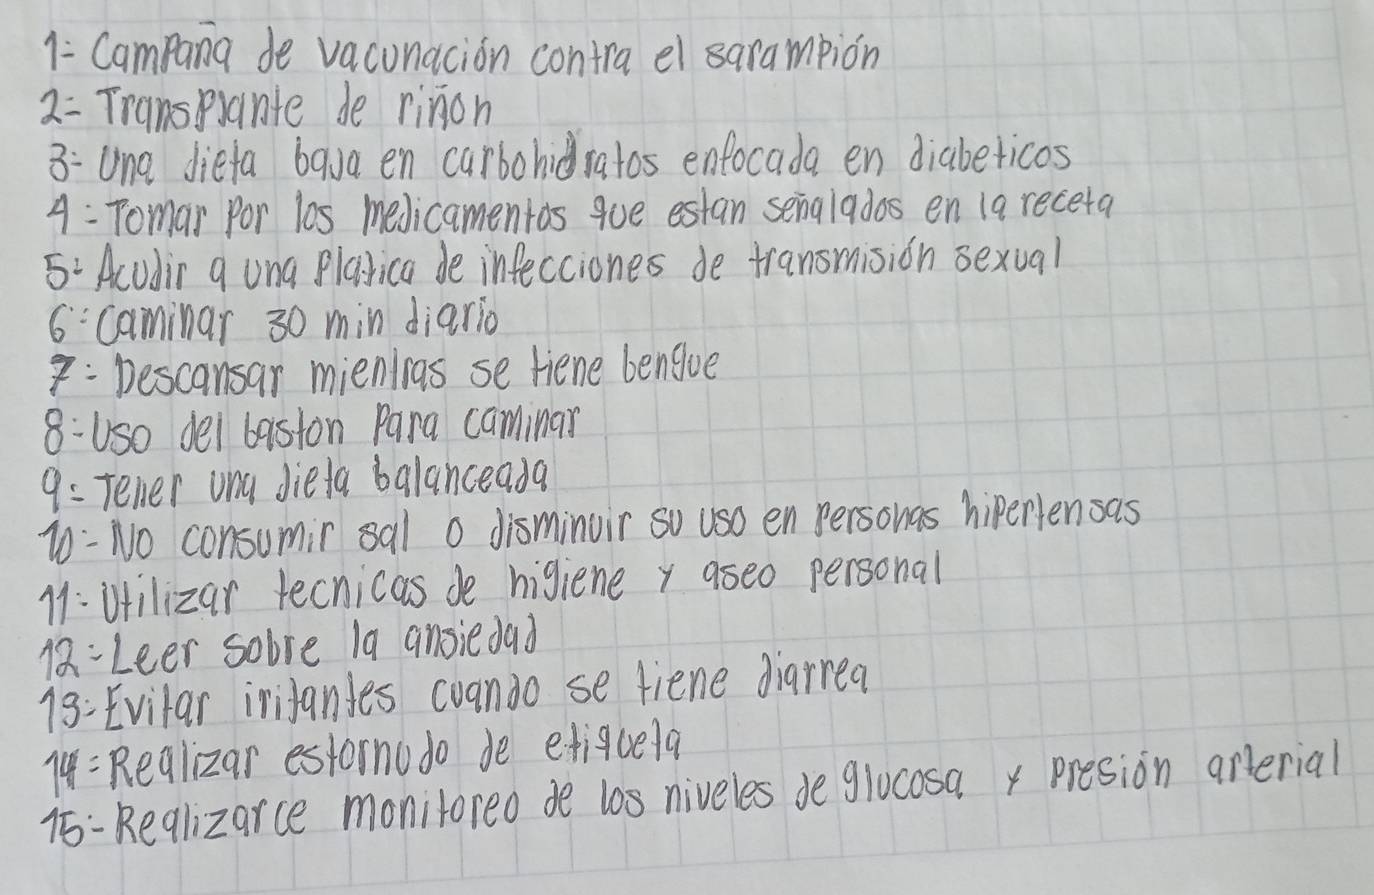 1= Campaña de vacunación contra el sarampión
2= Transplante de riñon
3= Una dieta baja en carbohidratos enfocada en diabeticos
4= Tomar por los medicamentos que estan señalados en la receta
5= Acudir a una platica de infecciones de transmisión sexual
6= Caminar 30 min diario
7= Descansar mientras se tiene bengue
8= Uso del baston para caminar
9= Tener una dieta balanceada
10= No consumir sal o disminuir su uso en personas hipertensas
11= Utilizar tecnicas de higiene y aseo personal
12= Leer sobre la ansiedad
13= Evitar iritantes cuando se tiene diarrea
14= Realizar estornudo de etiqueta
15= Realizarce monitoreo de los niveles de glucosa y presión arterial